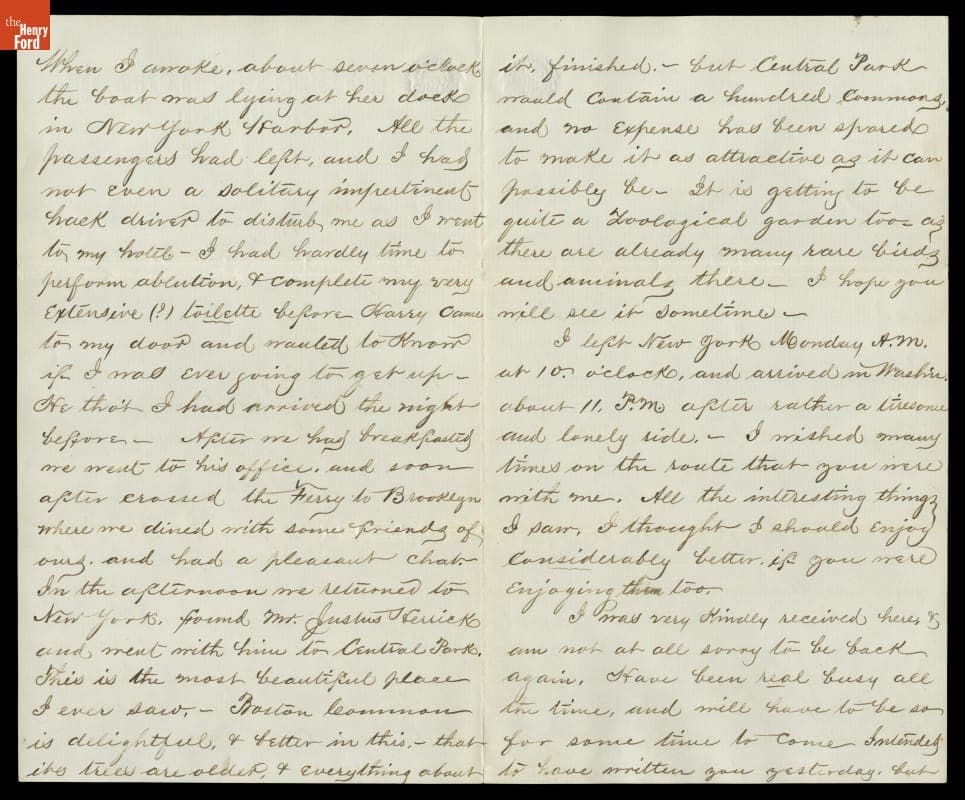 the
Henry
Ford
When I awoke, about seven o'clock
the boat was lying at her dock
in New York Harbor. All the
passengers had left, and I had
not even a solitary impertinent
hack driver to disturb me as I went
to my hotel – I had hardly time to
perform ablution, & complete my very
Extensive (?) toilette before Harry came
to my door and wanted to Know
if I was ever going to get up –
He tho't I had arrived the night
before – After we had breakfasted
we went to his office, and soon
after crossed the Ferry to Brooklyn
where we dined with some friends of
ours. and had a pleasant chat.
In the afternoon we returned to
New York, found Mr. Justus Herrick
and went with him to Central Park.
This is the most beautiful place
I ever saw, – Boston Common
is delightful, & better in this, – that
its trees are older, & everything about
it, finished. – but Central Park
would contain a hundred Commons,
and no expense has been spared
to make it as attractive as it can
possibly be – It is getting to be
quite a Zoological garden too – as
there are already many rare birds
and animals there – I hope you
will see it sometime –
I left New York Monday A.M.
at 10. o'clock, and arrived in Washin.
about 11. P.M. after rather a tiresome
and lonely ride. – I wished many
times on the route that you were
with me. All the interesting things
I saw, I thought I should enjoy
considerably better, if you were
enjoying them too.
I was very Kindly received here, &
am not at all sorry to be back
again. Have been real busy all
the time, and will have to be so
for some time to come Intended
to have written you yesterday, but